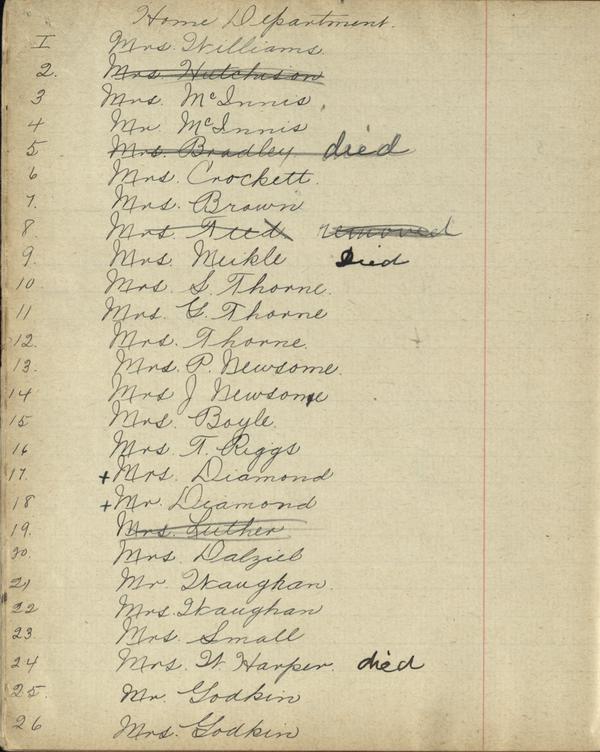 Home Department.
I Mrs. Williams
2. Mrs. Hutchison
3 Mrs. McInnis
4 Mr McInnis
5 Mrs. Bradley died
6 Mrs. Crockett.
7. Mrs. Brown
8 Mrs. removed
9. Mrs. Meikle Died
10 Mrs. S. Thorne.
11 Mrs. G. Thorne
12. Mrs. Thorne.
13. Mrs. P. Newsome.
14 Mrs J Newsome
15 Mrs. Boyle.
16 Mrs. T. Riggs
17. +Mrs. Diamond
18 +Mr. Diamond
19. Mrs. Luther
20. Mrs. Dalziel
21 Mr. Waughan.
22 Mrs. Waughan
23. Mrs. Small
24 Mrs. W. Harper. died
25. Mr. Godkin
26 Mrs. Godkin